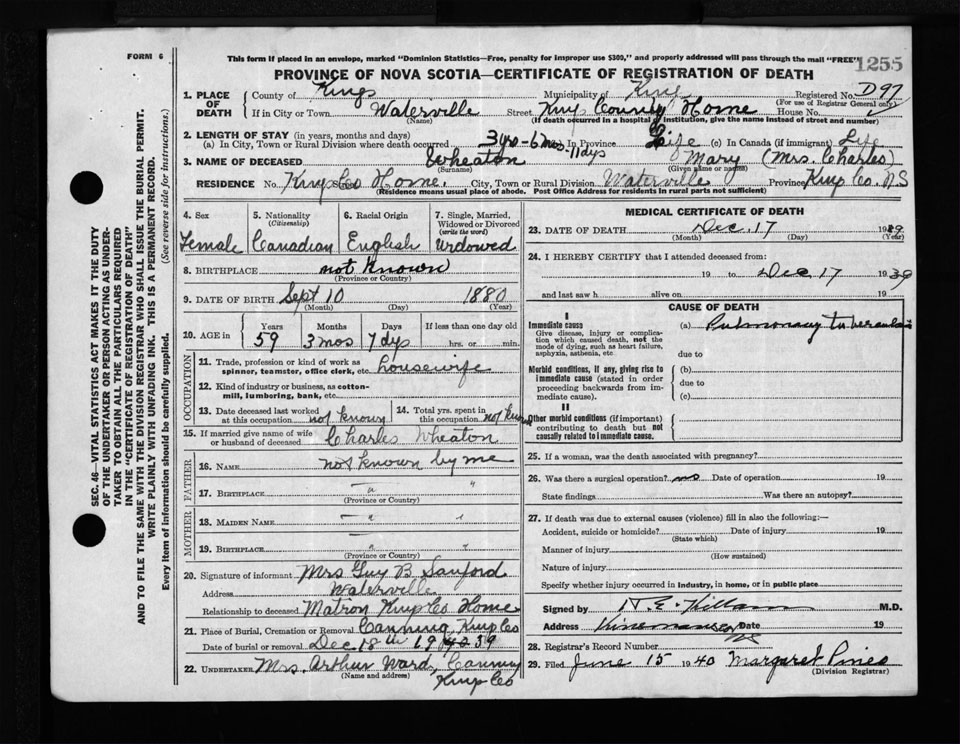 FORM 6
This form if placed in an envelope, marked "Dominion Statistics—Free, penalty for improper use $300," and properly addressed will pass through the mail "FREE"
1255
PROVINCE OF NOVA SCOTIA—CERTIFICATE OF REGISTRATION OF DEATH
1. PLACE OF DEATH
County of Kings Municipality of Kings Registered No. D97
(For use of Registrar General only)
If in City or Town Waterville Street Kings County Home House No.
(Name) (If death occurred in a hospital or institution, give the name instead of street and number)
2. LENGTH OF STAY (in years, months and days)
(a) In City, Town or Rural Division where death occurred 3 yrs - 6 mos - 11 dys In Province Life (c) In Canada (if immigrant) Life
3. NAME OF DECEASED Wheaton Mary (Mrs. Charles)
(Surname) (Given name or names)
RESIDENCE No. Kings Co Home. City, Town or Rural Division Waterville Province Kings Co. N S
(Residence means usual place of abode. Post Office Address for Residents in rural parts not sufficient)
4. Sex Female
5. Nationality (Citizenship) Canadian
6. Racial Origin English
7. Single, Married, Widowed or Divorced (write the word) Widowed
8. BIRTHPLACE not known
(Province or Country)
9. DATE OF BIRTH Sept 10 1880
(Month) (Day) (Year)
10. AGE in Years 59 Months 3 mos Days 7 dys If less than one day old hrs. or min.
OCCUPATION
11. Trade, profession or kind of work as spinner, teamster, office clerk, etc. housewife
12. Kind of industry or business, as cotton-mill, lumbering, bank, etc.
13. Date deceased last worked at this occupation not known
14. Total yrs. spent in this occupation not known
15. If married give name of wife or husband of deceased Charles Wheaton
FATHER
16. NAME not known by me
17. BIRTHPLACE " "
(Province or Country)
MOTHER
18. MAIDEN NAME " "
19. BIRTHPLACE " "
(Province or Country)
20. Signature of informant Mrs Guy B Sanford
Address Waterville
Relationship to deceased Matron Kings Co Home
21. Place of Burial, Cremation or Removal Canning, Kings Co
Date of burial or removal Dec 18th 1939
22. UNDERTAKER Mrs. Arthur Ward, Canning
(Name and address) Kings Co
MEDICAL CERTIFICATE OF DEATH
23. DATE OF DEATH Dec. 17 1939
(Month) (Day)
24. I HEREBY CERTIFY that I attended deceased from:
19 to Dec 17 1939
and last saw h alive on 19
CAUSE OF DEATH
I
Immediate cause (a) Pulmonary tuberculosis
Give disease, injury or complication which caused death, not the mode of dying, such as heart failure, asphyxia, asthenia, etc.
due to
Morbid conditions, if any, giving rise to immediate cause (stated in order proceeding backwards from immediate cause).
(b)
due to
(c)
II
Other morbid conditions (if important) contributing to death but not causally related to immediate cause.
25. If a woman, was the death associated with pregnancy?
26. Was there a surgical operation? no Date of operation 19
State findings Was there an autopsy?
27. If death was due to external causes (violence) fill in also the following:—
Accident, suicide or homicide? Date of injury 19
(State which)
Manner of injury
(How sustained)
Nature of injury
Specify whether injury occurred in industry, in home, or in public place
Signed by H. E. Killam M.D.
Address Date 19
NS
28. Registrar's Record Number
29. Filed June 15 1940 Margaret Pineo
(Division Registrar)
SEC. 46—VITAL STATISTICS ACT MAKES IT THE DUTY
OF THE UNDERTAKER OR PERSON ACTING AS UNDER-
TAKER TO OBTAIN ALL THE PARTICULARS REQUIRED
IN THE "CERTIFICATE OF REGISTRATION OF DEATH"
AND TO FILE THE SAME WITH THE DIVISION REGISTRAR WHO SHALL ISSUE THE BURIAL PERMIT.
WRITE PLAINLY WITH UNFADING INK. THIS IS A PERMANENT RECORD.
Every item of information should be carefully supplied. (See reverse side for instructions.)